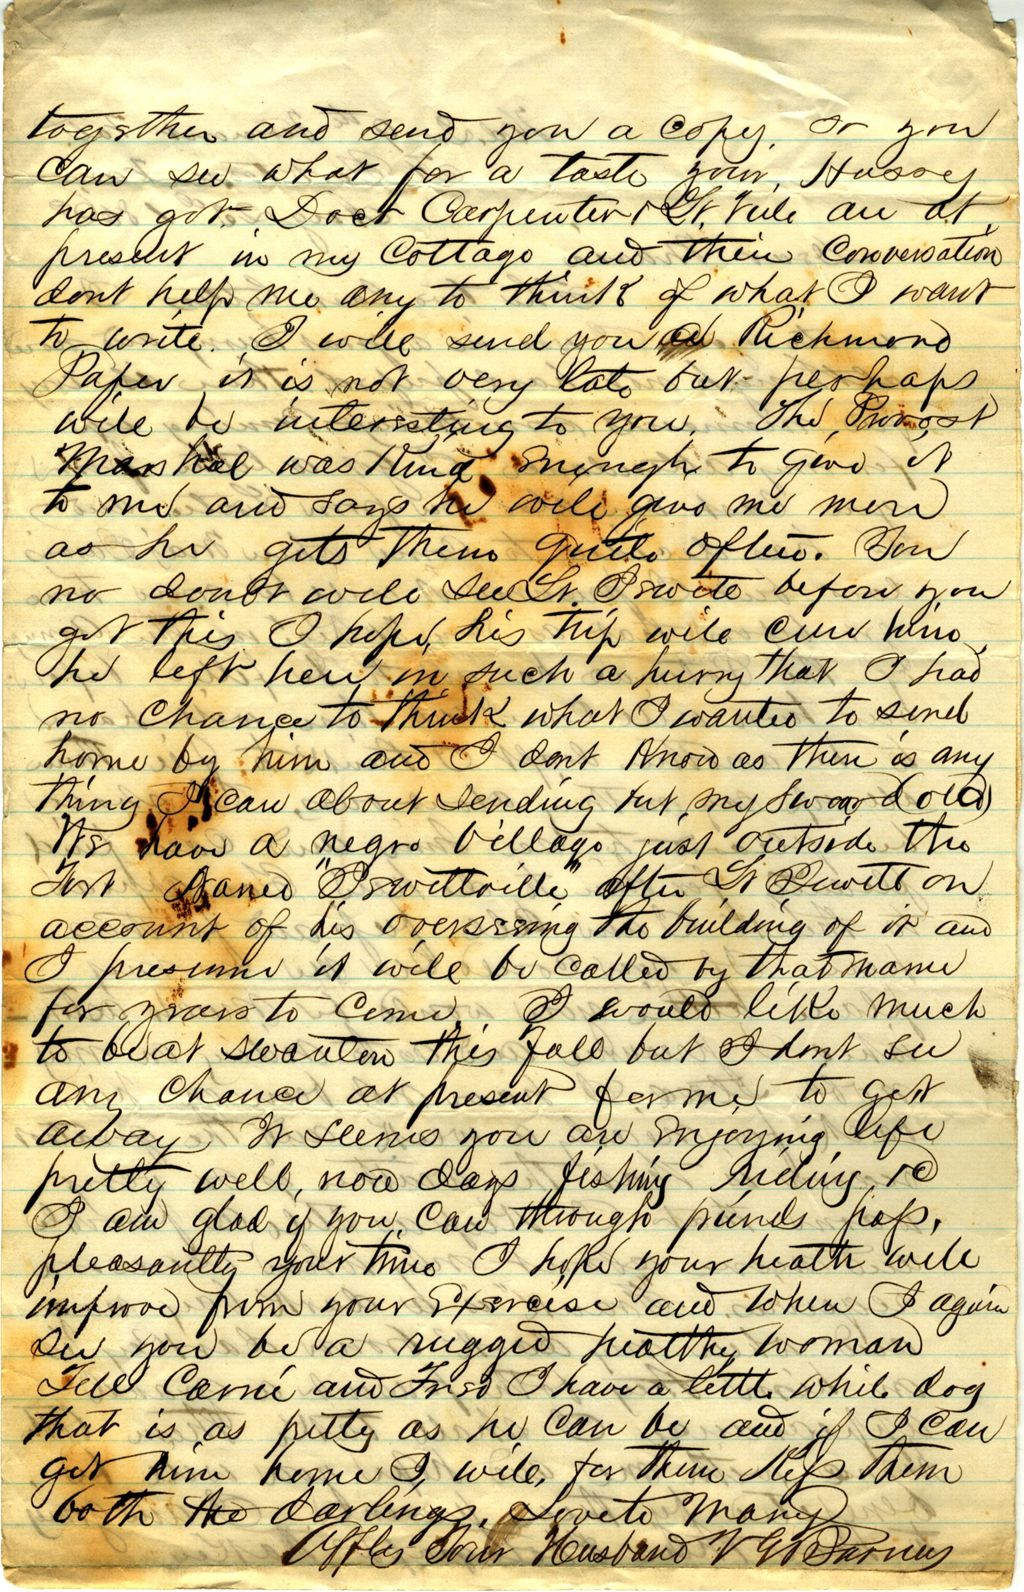 together and send you a copy, so you
can see what for a taste your Hussey
has got. Doct Carpenter & Lt. are at
present in my Cottage and their Conversation
dont help me any to think of what I want
to write. I will send you a Richmond
Paper it is not very late but perhaps
will be interesting to you. The Provost
Marshal was Kind Enough to give it
to me and says he will give me more
as he gets them quite often. You
no doubt will see Lt. Prewitt before you
get this I hope his trip will cure him,
he left here in such a hurry that I had
no chance to think what I wanted to send
home by him and I dont Know as there is any
thing I care about sending but my Sword (old)
We have a negro Village just outside the
Fort Named "Prewittville" after Lt Prewitt on
account of his overseeing the building of it and
I presume it will be called by that name
for years to Come I would like much
to be at Swanton this fall but I dont see
any chance at present for me to get
away It seems you are Enjoying life
pretty well, now days fishing riding, &c
I am glad if you can through friends pass,
pleasantly your time I hope your health will
improve from your Exercise and when I again
see you be a rugged healthy woman
Tell Carrie and Fred I have a little white dog
that is as pretty as he can be and if I can
get him home I will, for them Kiss them
both the darlings, love to Many
Afftly Your Husband V G Barney